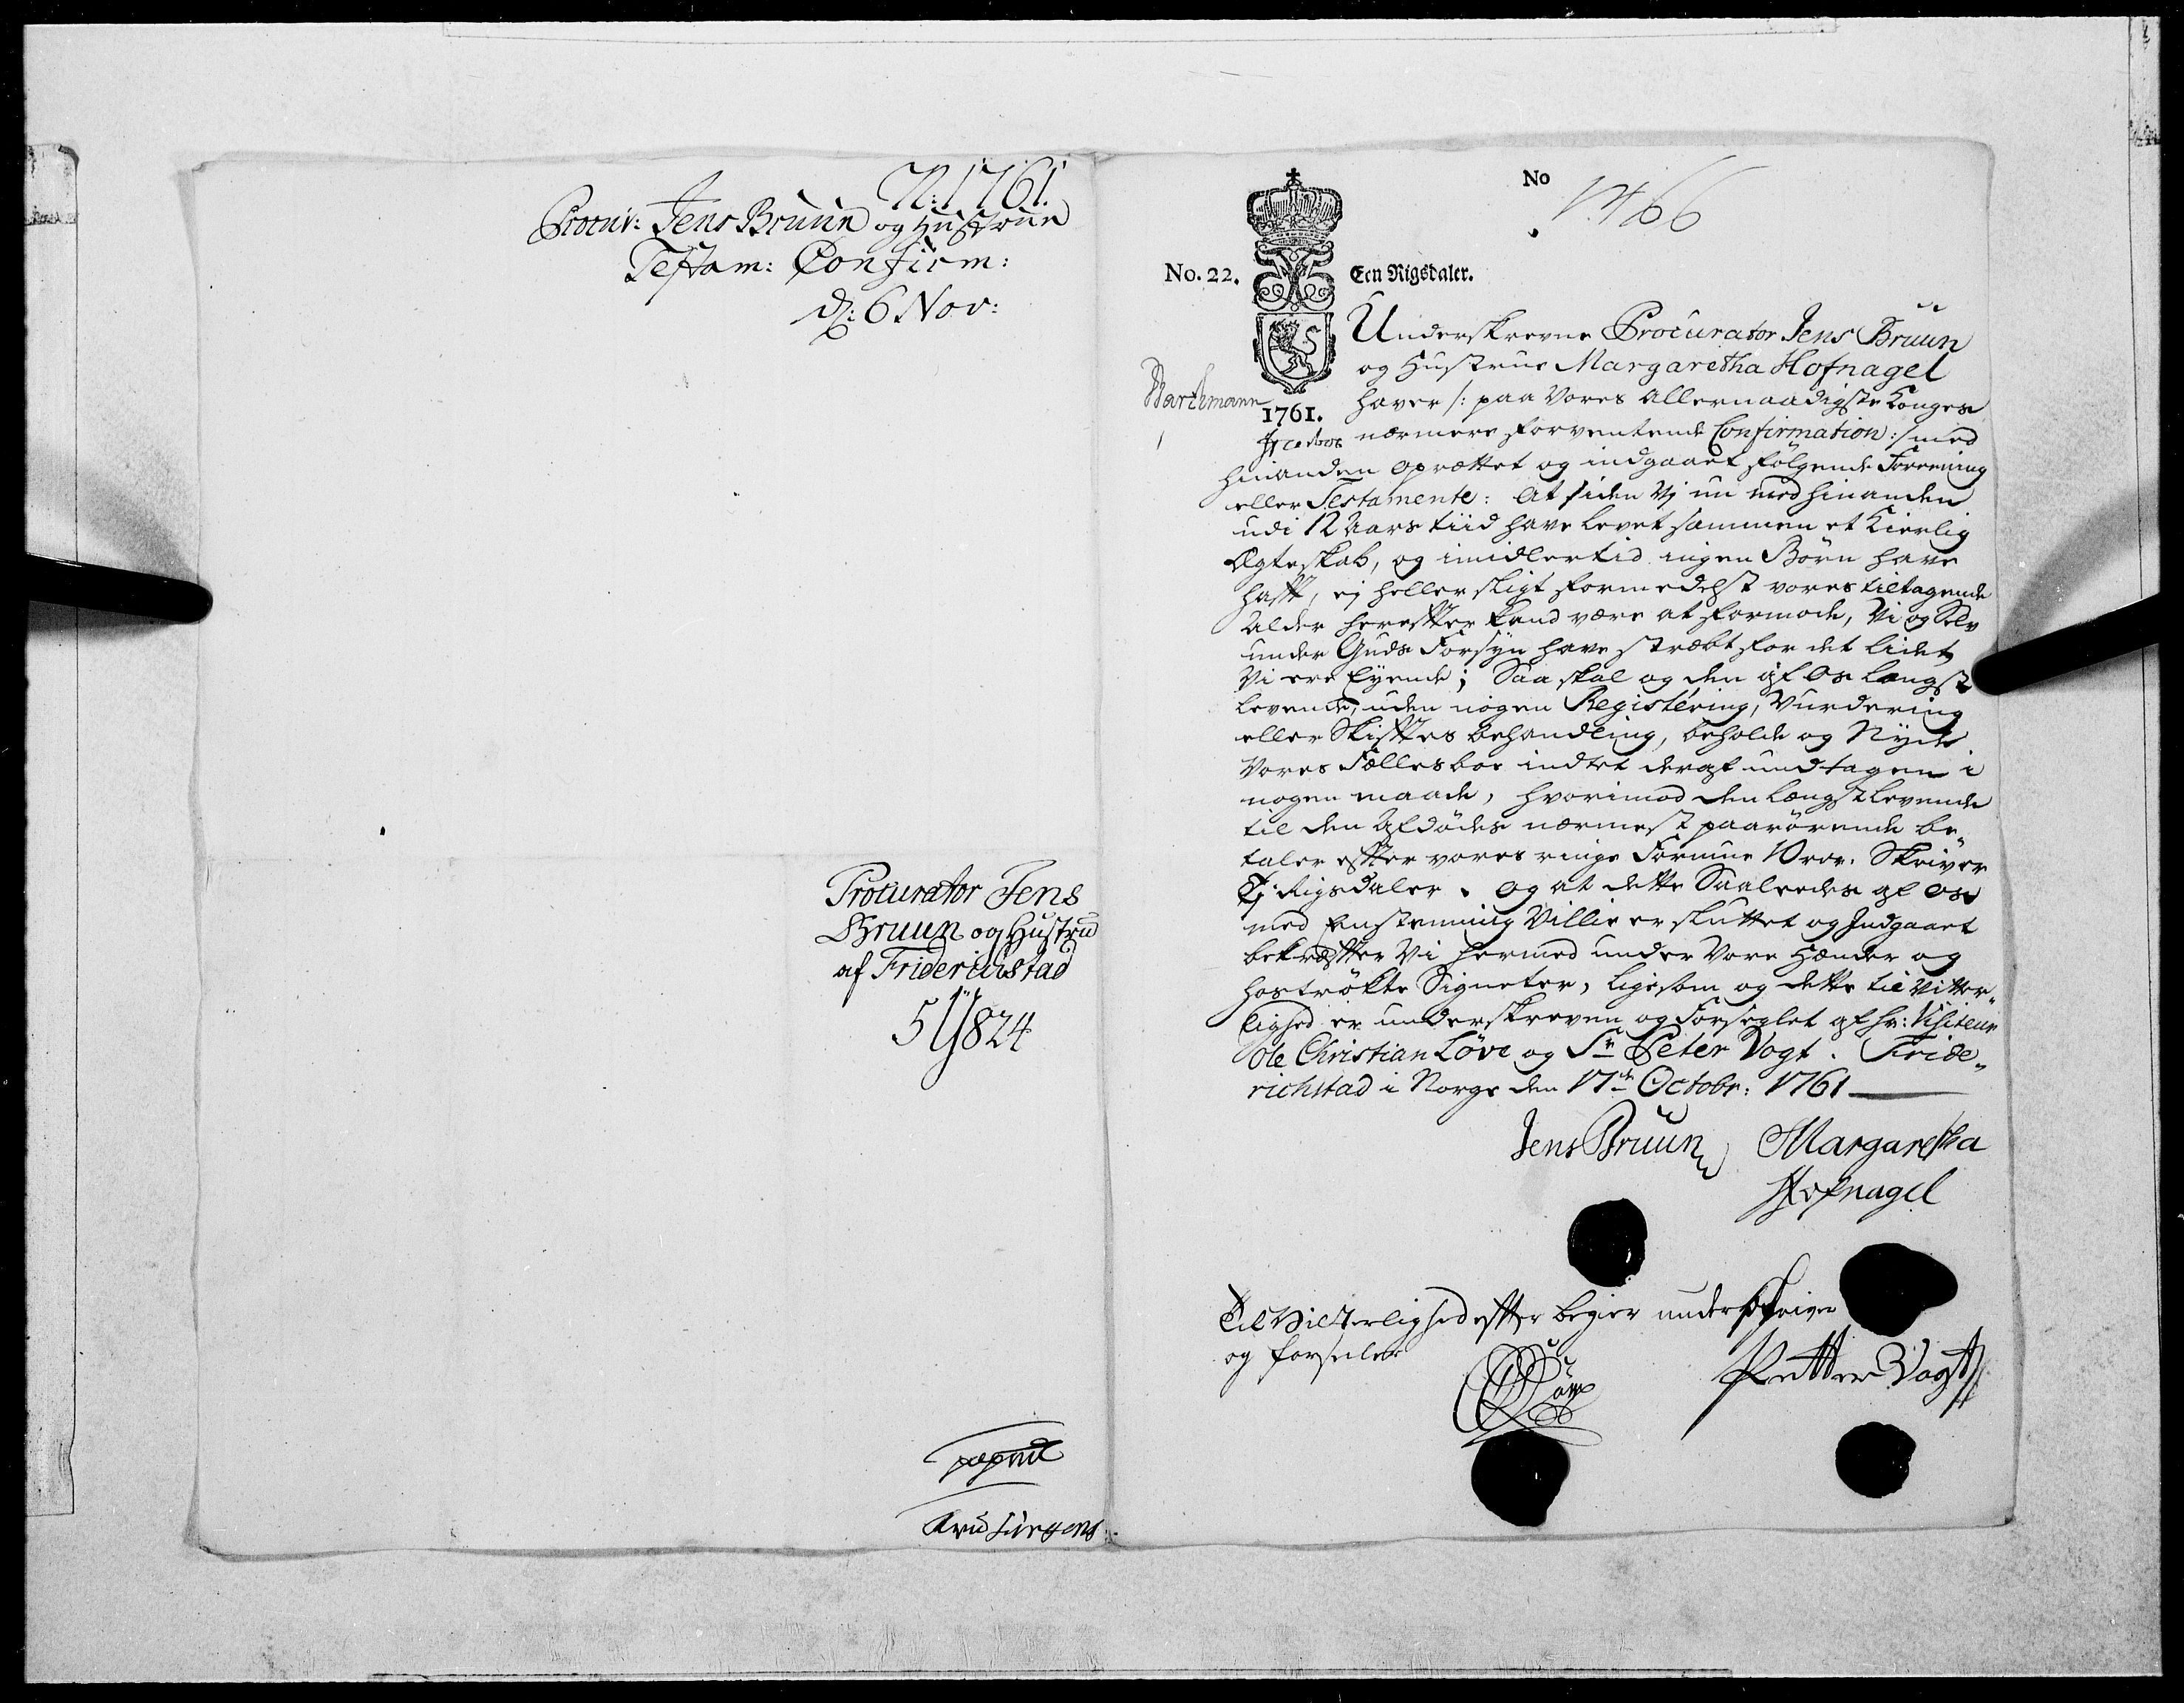 N: 1761.
Procur: Jens Bruun og Hustrue
Testam: Confirm:
d: 6 Nov:
Procurator Jens
Bruun og Hustru
af Friderichstad
824
No
1466
No. 22.
Een Rigsdaler.
1761.
Underskrevne Procurator Jens Bruun
og Hustrue Margaretha Hofnagel
haver /: paa Vores Allernaadigste Konges
nærmere forventende Confirmation :/ med
hinanden oprættet og indgaaet følgende Foreening
eller Testamente: At siden Vj nu med hinanden
udi 12 Aars tiid have levet sammen et Kierlig
Ægteskab, og imidlertid ingen Børn have
hafft, ej heller sligt formedelst vores tiltagende
Alder herefter kand være at formode, Vi og Selv
under Guds Forsyn have stræbt for det lidet
Vi ere Eyende; Saa skal og den af Os længst
levende, uden nogen Registering, Vurdering
eller Skifftes behandling, beholde og Nyde
Vores Fællesboe indtet deraf undtagen i
nogen maade, hvorimod den længstlevende
til den Afdødes nærmest paarørende be-
taler effter vores ringe Formue 10 rdr. Skriver
Tj Rigsdaler. og at dette Saaleedes af os
med Enstemmig Villie er sluttet og Indgaaet
bekræffter Vi hermed under Vore Hænder og
hostrøkte Signeter, ligesom og dette til Vitter-
lighed er underskreven og Forseglet af hr: Visiteur
Ole Christian Løve og Sr Peter Vogt. Fride-
richstad i Norge den 17de Octobr: 1761
Jens Bruun Margaretha
Hofnagel
Til Vitterlighed effter begier underskriver
og forseiler
Løve
Petter Vogt